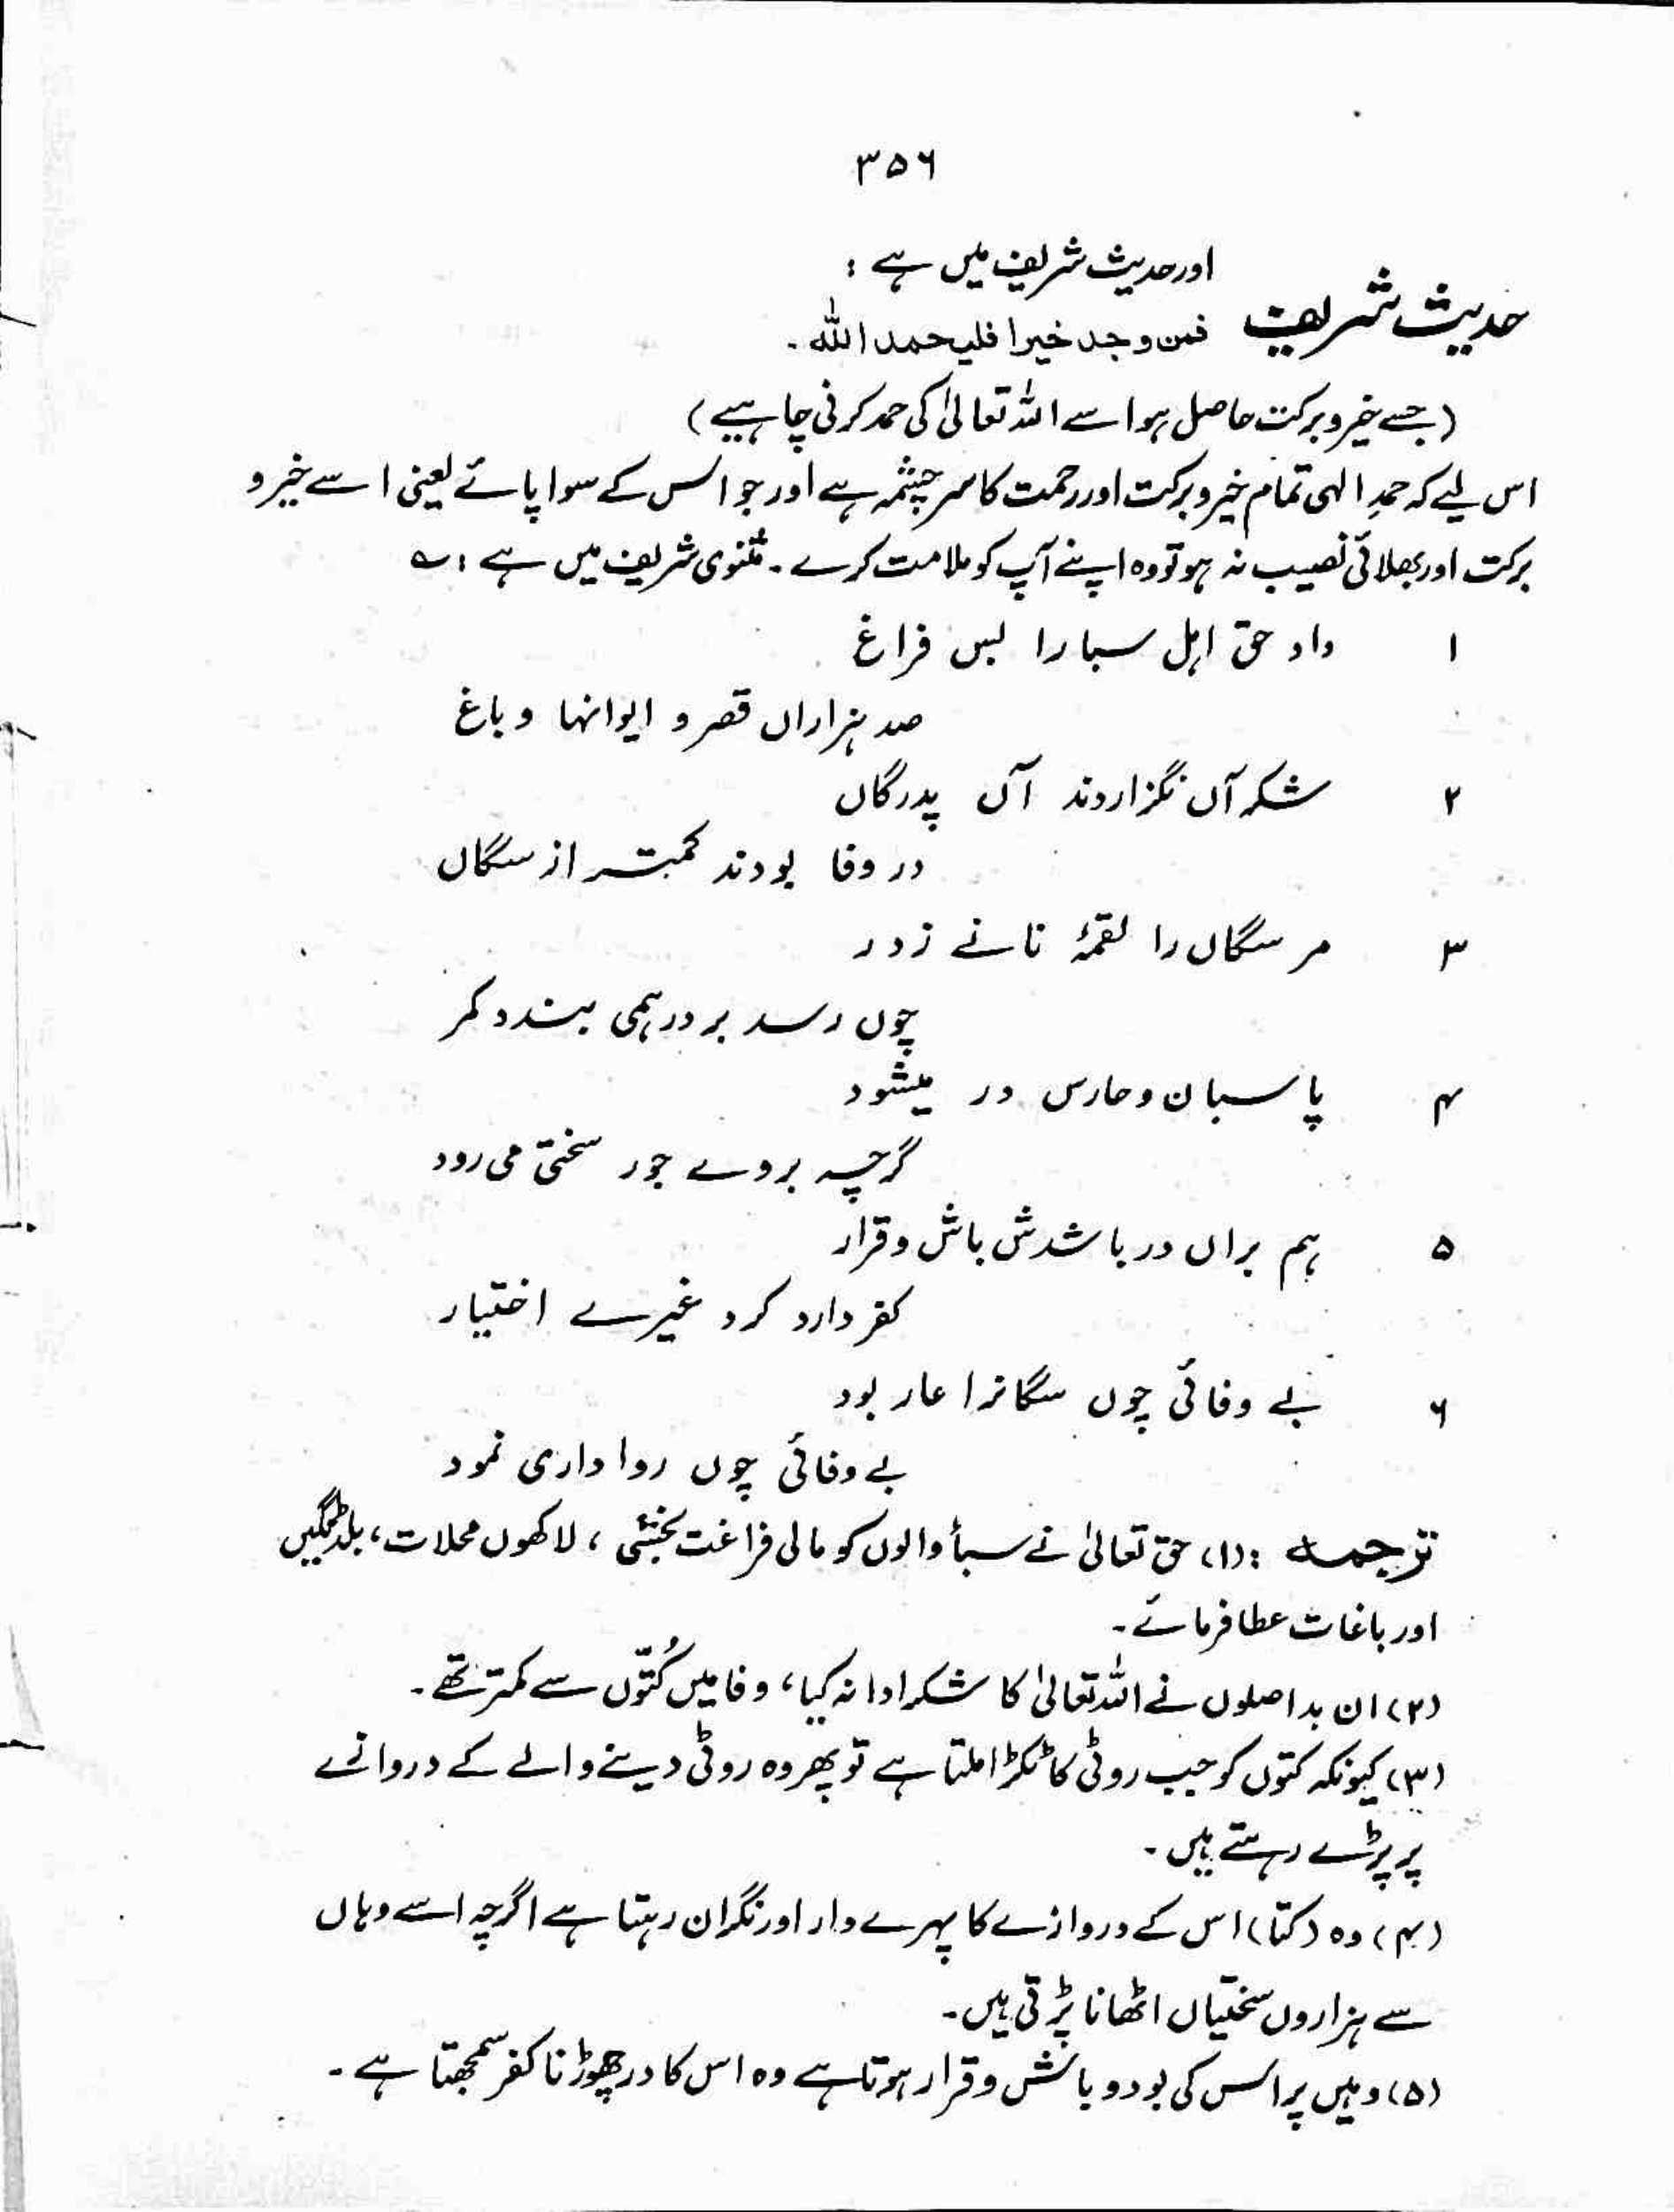 ۳۵۶
اور حدیث شریف میں ہے :
حدیث شریف
فمن وجد خیرا فلیحمد اللہ ۔
(جسے خیر و برکت حاصل ہو اسے اللہ تعالیٰ کی حمد کرنی چاہیے)
اس لیے کہ حمدِ الٰہی تمام خیر و برکت اور رحمت کا سرچشمہ ہے اور جو اس کے سوا پائے یعنی اسے خیر و
برکت اور بھلائی نصیب نہ ہو تو وہ اپنے آپ کو ملامت کرے ۔ مثنوی شریف میں ہے : ؎
۱ داد حق اہل سبا را بس فراغ
صد ہزاراں قصر و ایوانہا و باغ
۲ شکر آں نگزاردند آں بدرگاں
در وفا بودند کمتر از سگاں
۳ مر سگاں را لقمۂ نانے ز در
چوں رسد بر در ہمی بندد کمر
۴ پاسبان و حارس در میشود
گرچہ بروے جور سختی می رود
۵ ہم براں در باشدش باش و قرار
کفر دارد کرد غیرے اختیار
۶ بے وفائی چوں سگانرا عار بود
بے وفائی چوں روا داری نمود
ترجمہ : (۱) حق تعالیٰ نے سبأ والوں کو مالی فراغت بخشی ، لاکھوں محلات ، بلڈنگیں
اور باغات عطا فرمائے ۔
(۲) ان بداصلوں نے اللہ تعالیٰ کا شکر ادا نہ کیا ، وفا میں کُتّوں سے کمتر تھے ۔
(۳) کیونکہ کتوں کو جب روٹی کا ٹکڑا ملتا ہے تو پھر وہ روٹی دینے والے کے دروازے
پر پڑے رہتے ہیں ۔
(۴) وہ (کتا) اس کے دروازے کا پہرے دار اور نگران رہتا ہے اگرچہ اسے وہاں
سے ہزاروں سختیاں اٹھانا پڑتی ہیں ۔
(۵) وہیں پر اس کی بود و باش و قرار ہوتا ہے وہ اس کا در چھوڑنا کفر سمجھتا ہے ۔